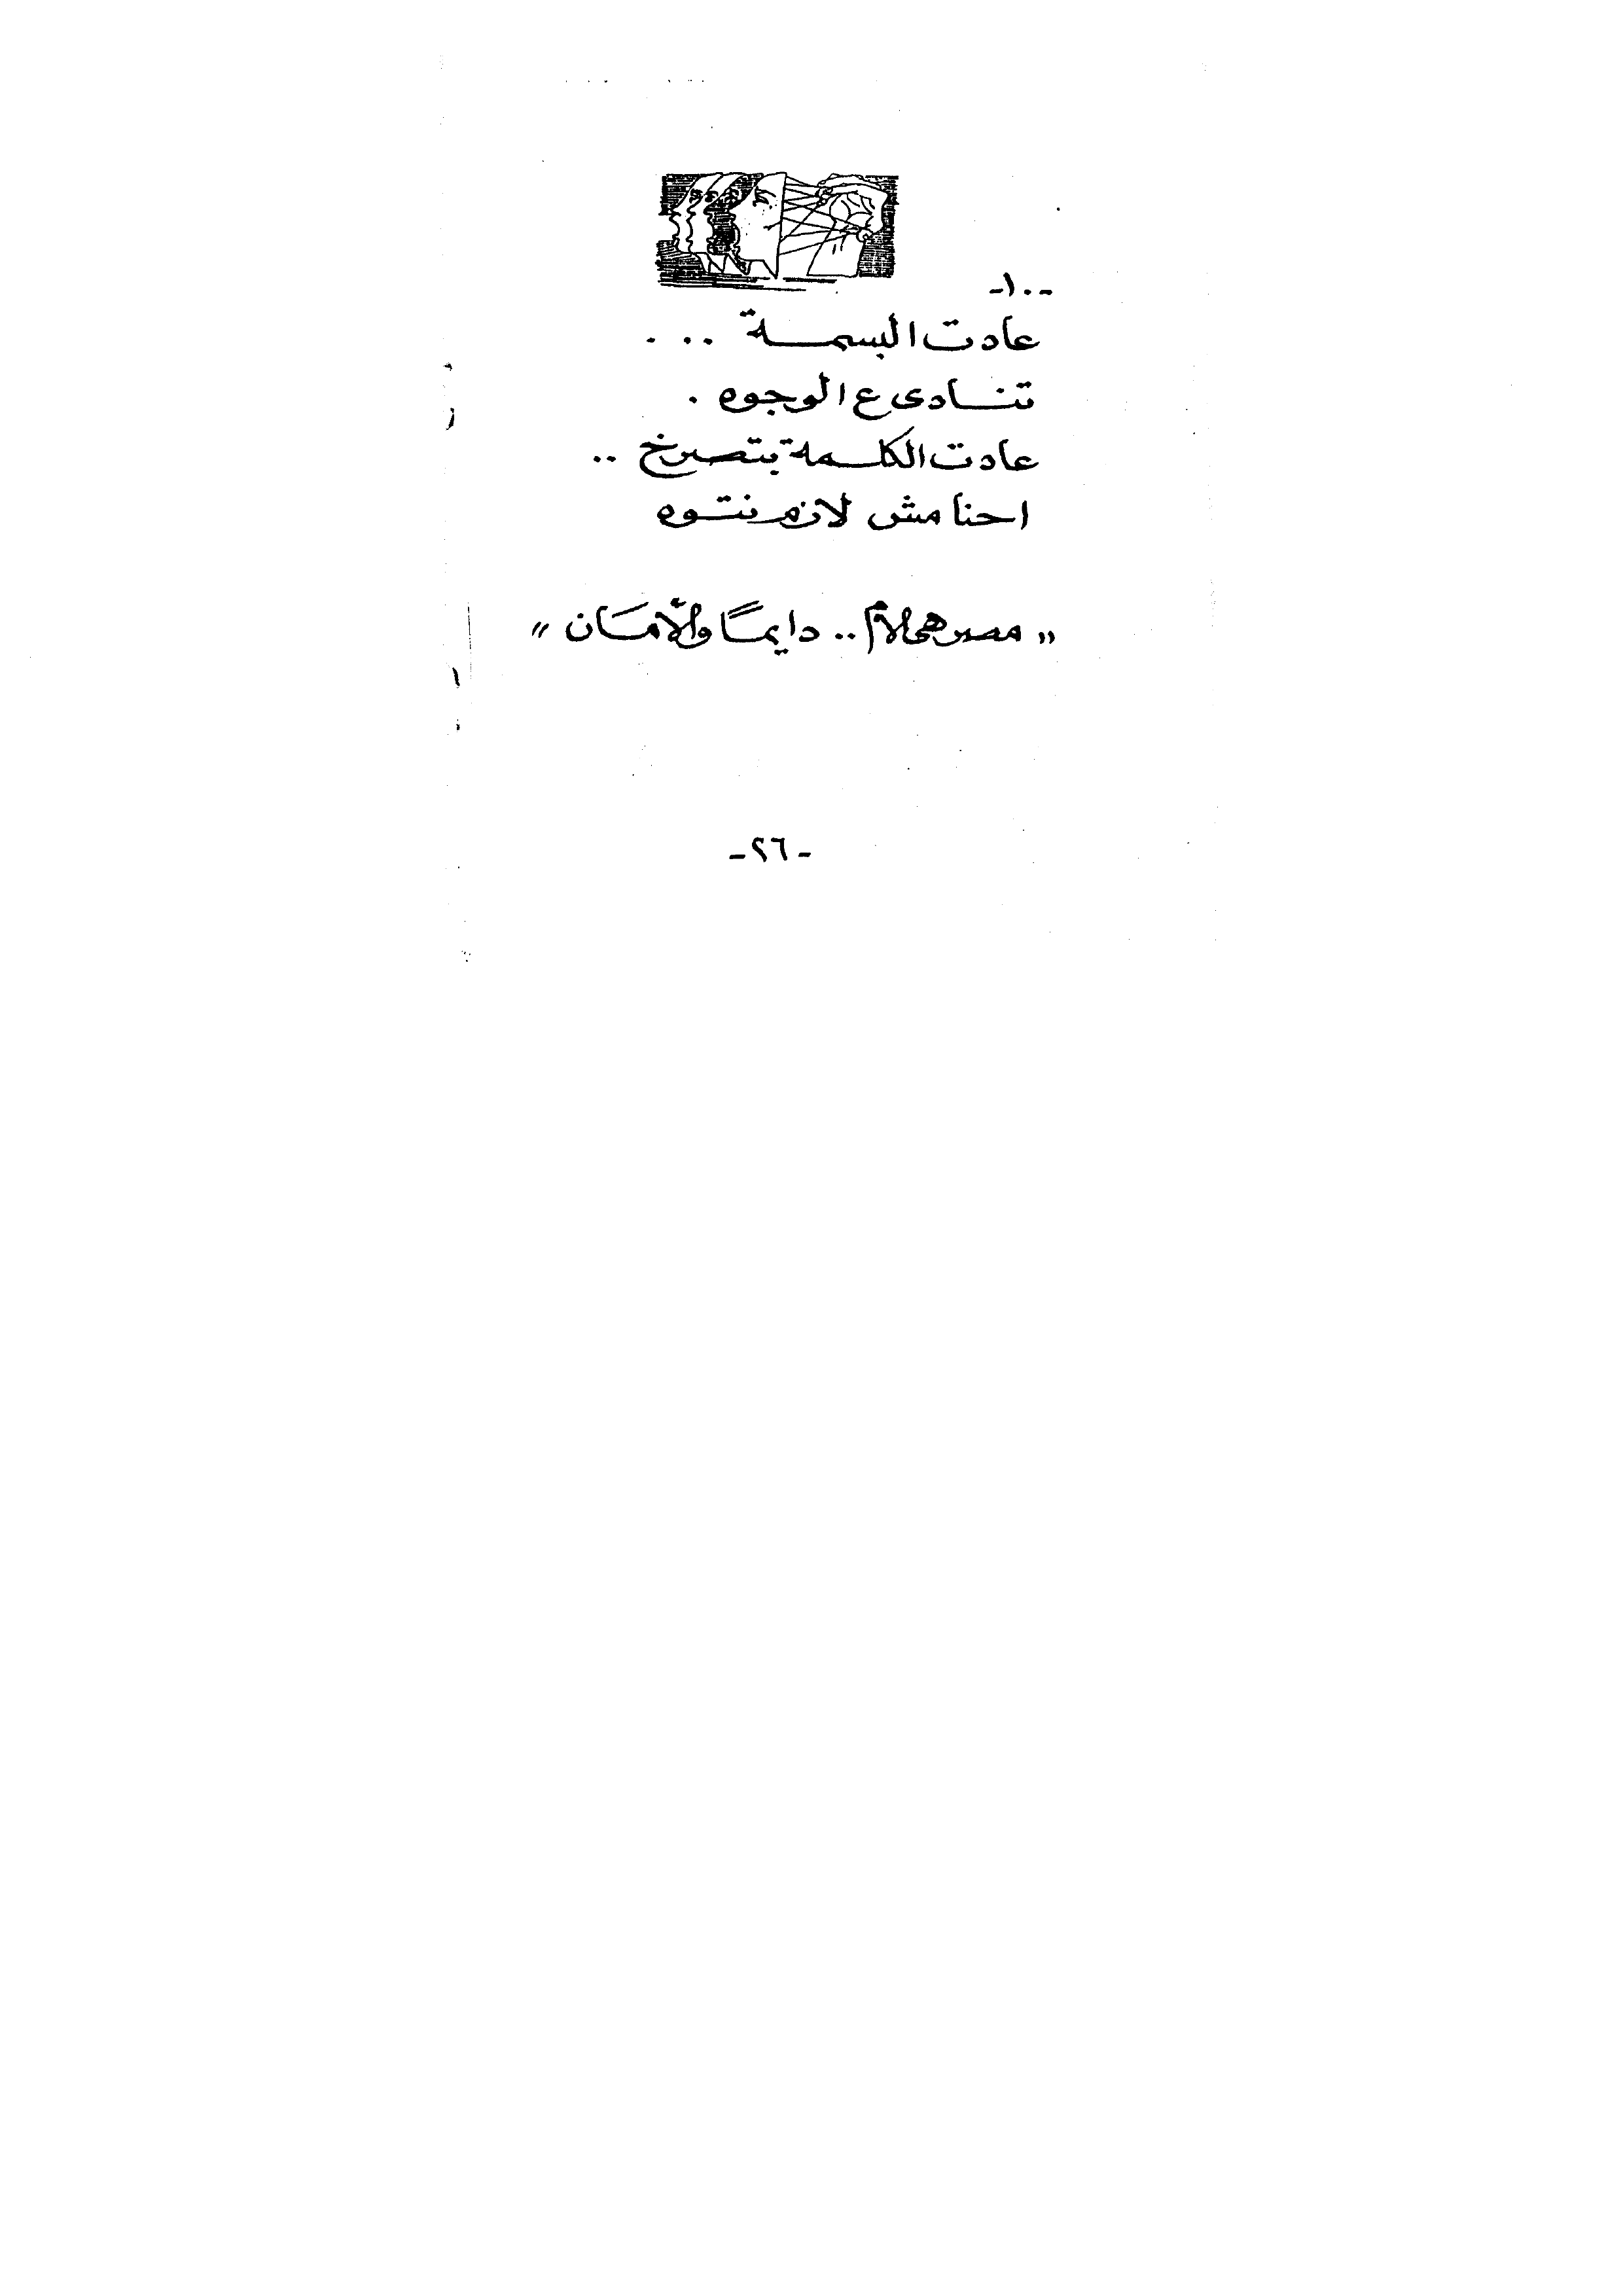 -١٠-
عادت البسمة ...
تنادى ع الوجوه .
عادت الكلمة بتصرخ ..
احنا مش لازم نتوه
" مصر هى الأم .. دايمًا والأمَان "
-٢٦-